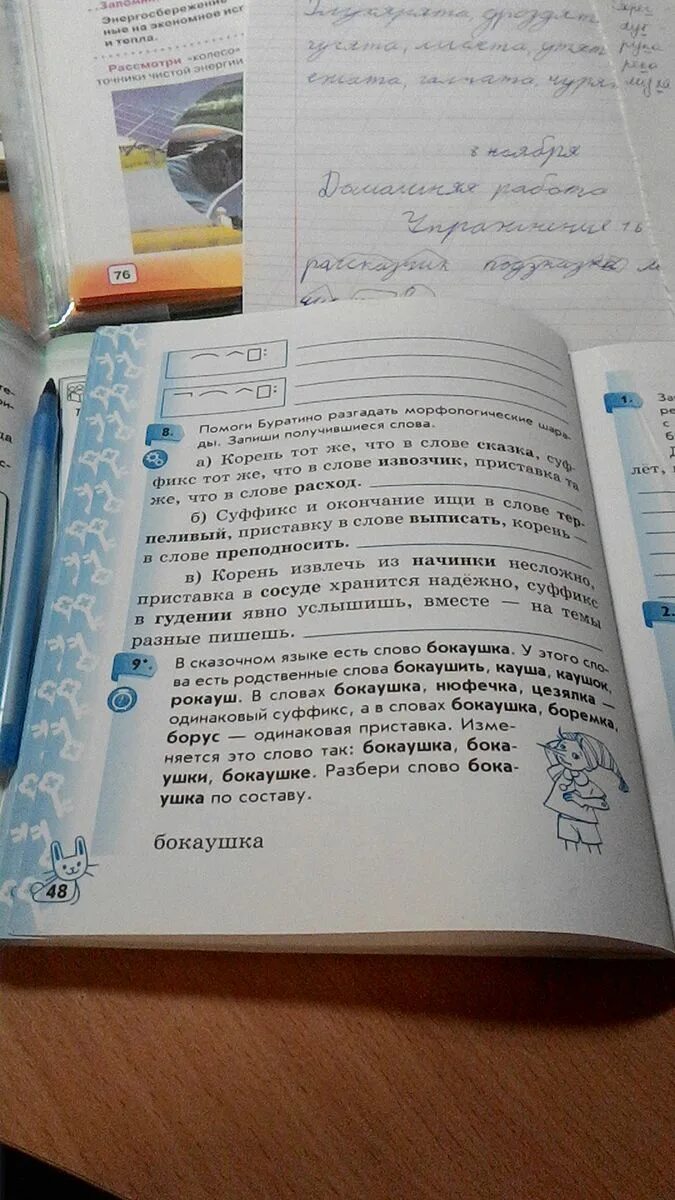 Запомни
Энергосбережение
ные на экономное исп
и тепла.
Рассмотри «колесо»
точники чистой энергии
76
дроздят
лисята, утят
галчата,
рука
8 ноября
Домашняя работа
Упражнение
рассказчик подсказка
8.
Помоги Буратино разгадать морфологические шара-
ды. Запиши получившиеся слова.
а) Корень тот же, что в слове сказка, суф-
фикс тот же, что в слове извозчик, приставка та
же, что в слове расход.
б) Суффикс и окончание ищи в слове тер-
пеливый, приставку в слове выписать, корень —
в слове преподносить.
в) Корень извлечь из начинки несложно,
приставка в сосуде хранится надёжно, суффикс
в гудении явно услышишь, вместе — на темы
разные пишешь.
9*.
В сказочном языке есть слово бокаушка. У этого сло-
ва есть родственные слова бокаушить, кауша, каушок,
рокауш. В словах бокаушка, нюфечка, цезялка —
одинаковый суффикс, а в словах бокаушка, боремка,
борус — одинаковая приставка. Изме-
няется это слово так: бокаушка, бока-
ушки, бокаушке. Разбери слово бока-
ушка по составу.
бокаушка
48
1.
2.